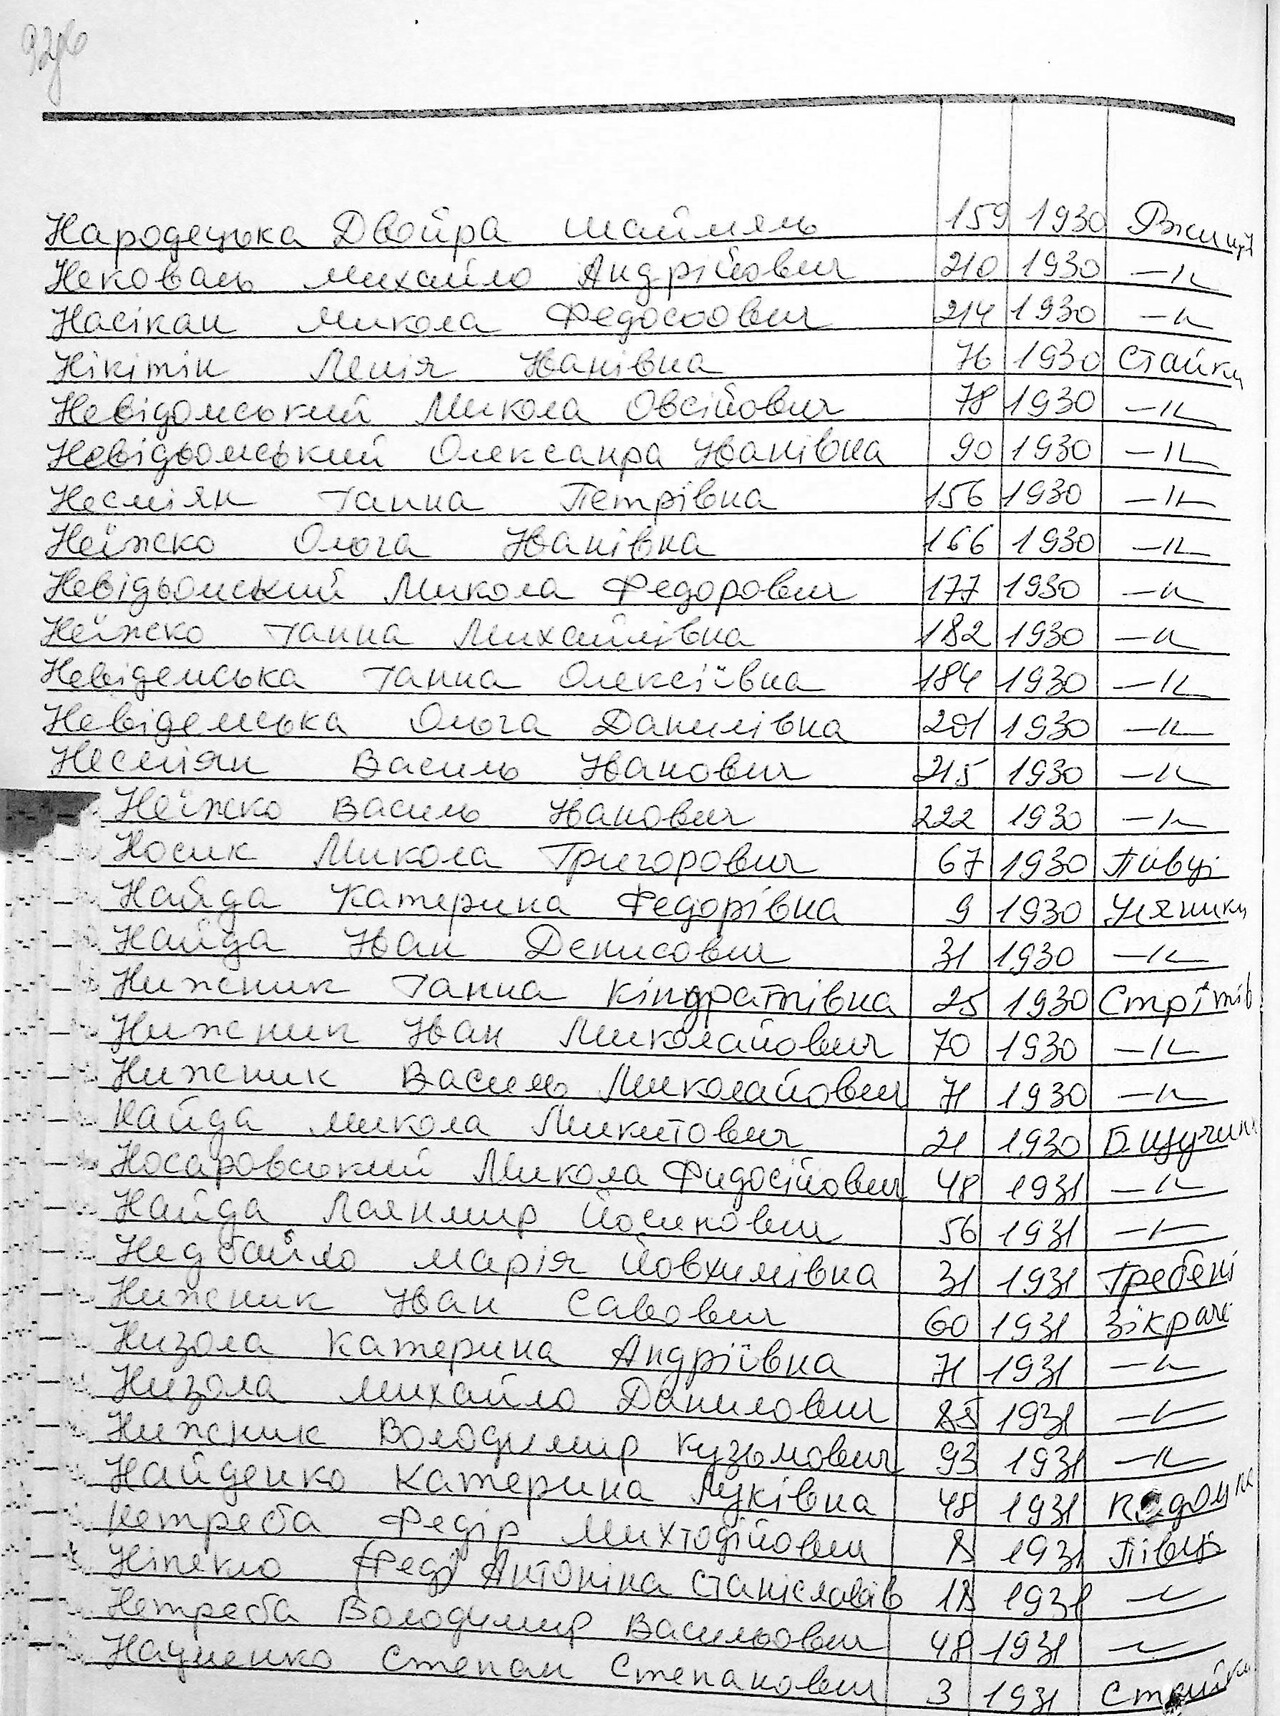 Народецька Двойра 159 1930
Нековаль Михайло Андрійович 210 1930 —"—
Насікан Микола Федосович 214 1930 —"—
Нікітін Іванівна 76 1930 Стайки
Невідомський Микола Овсійович 78 1930 —"—
Невідьомський Олександра Іванівна 90 1930 —"—
Несміян Ганна Петрівна 156 1930 —"—
Неїжско Ольга Іванівна 166 1930 —"—
Невідьомський Микола Федорович 177 1930 —"—
Неїжско Ганна Михайлівна 182 1930 —"—
Невідемська Ганна Олексіївна 184 1930 —"—
Невідемська Ольга Данилівна 201 1930 —"—
Несміян Василь Іванович 215 1930 —"—
Неїжко Василь Іванович 222 1930 —"—
Носик Микола Григорович 67 1930 Півці
Найда Катерина Федорівна 9 1930 Уляники
Найда Іван Денисович 31 1930 —"—
Нижник Ганна Кіндратівна 25 1930 Стрітів
Нижник Іван Миколайович 70 1930 —"—
Нижник Василь Миколайович 71 1930 —"—
Найда Микола Микитович 21 1930
Носаровський Микола Фидосійович 48 1931 —"—
Найда Йосипович 56 1931 —"—
Недбайло Марія Йовхимівна 31 1931 Гребені
Нижник Іван Савович 60 1931 Зікрачі
Низола Катерина Андріївна 71 1931 —"—
Низола Михайло Данилович 85 1931 —"—
Нижник Володимир Кузьмович 93 1931 —"—
Найденко Катерина Луківна 48 1931
Нетреба Федір Михтодійович 8 1931 Півці
Ніпекло (Федр) Антоніна Станіславів 18 1931 —"—
Нетреба Володимир Васильович 48 1931 —"—
Науменко Степан Степанович 3 1931 Стайки